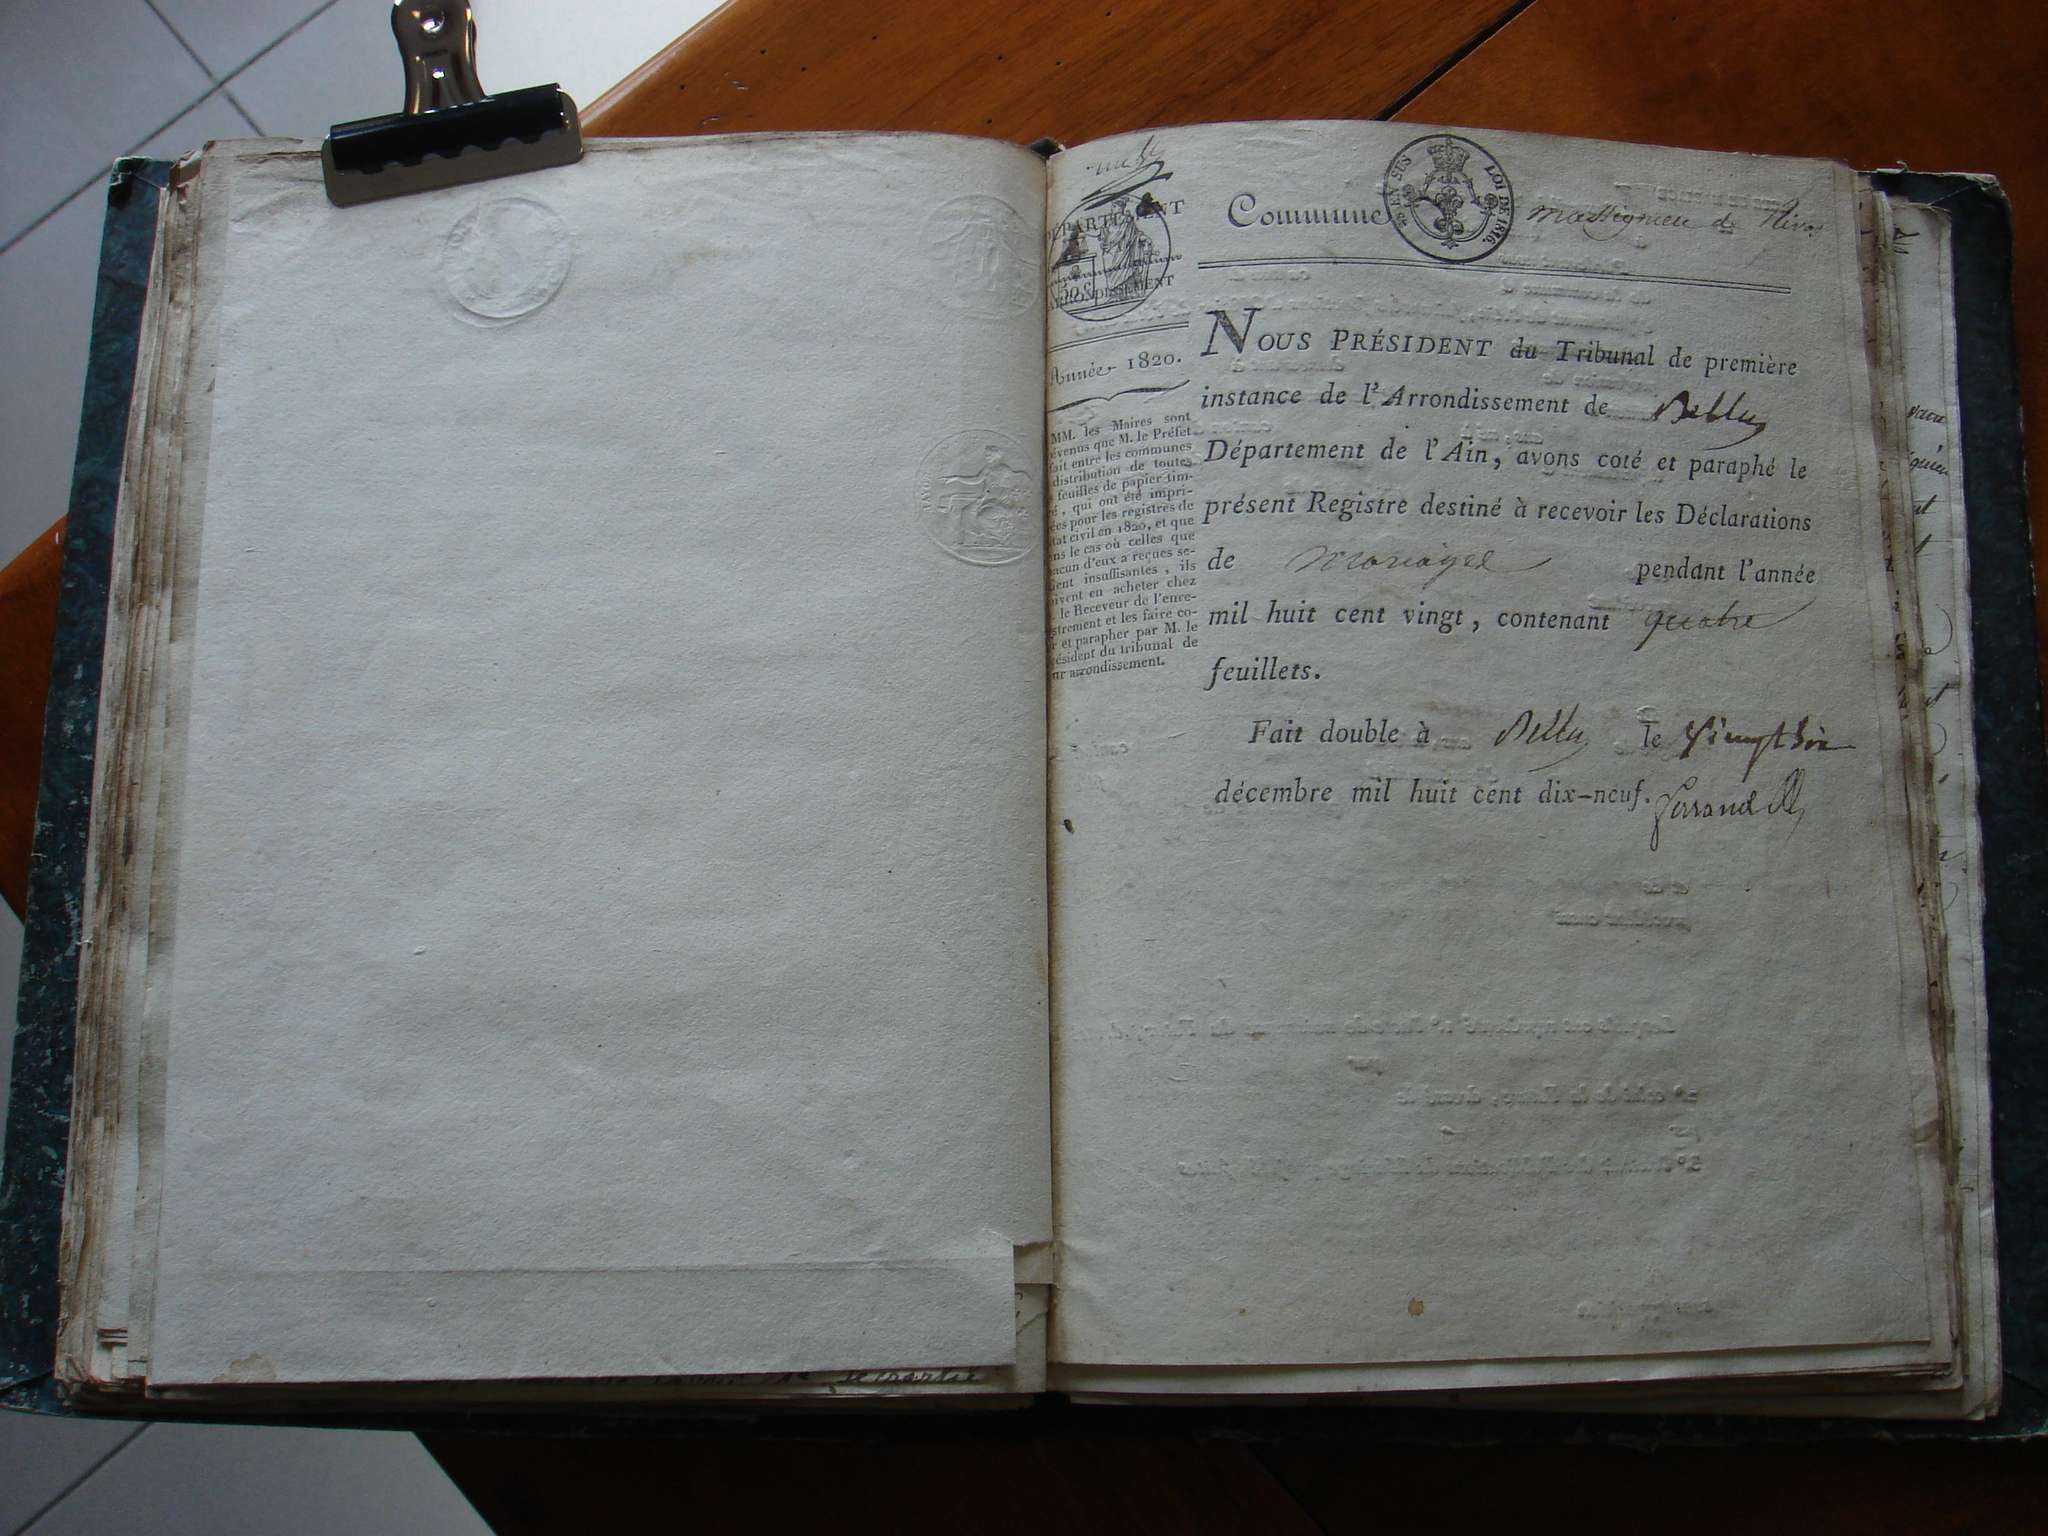 DÉPARTEMENT
ARRONDISSEMENT
Année 1820.
MM. les Maires sont
évenus que M. le Préfet
fait entre les communes
distribution de toutes
feuilles de papier tim-
é, qui ont été impri-
ées pour les registres de
tat civil en 1820, et que
ns le cas où celles que
acun d'eux a reçues se-
ient insuffisantes, ils
oivent en acheter chez
. le Receveur de l'enre-
strement et les faire co-
r et parapher par M. le
ésident du tribunal de
ur arrondissement.
Commune de Massignieu de Rives
EN SUS LOI DE 1816.
NOUS PRÉSIDENT du Tribunal de première
instance de l'Arrondissement de Belley
Département de l'Ain, avons coté et paraphé le
présent Registre destiné à recevoir les Déclarations
de mariages pendant l'année
mil huit cent vingt, contenant quatre
feuillets.
Fait double à Belley le vingt six
décembre mil huit cent dix-neuf.